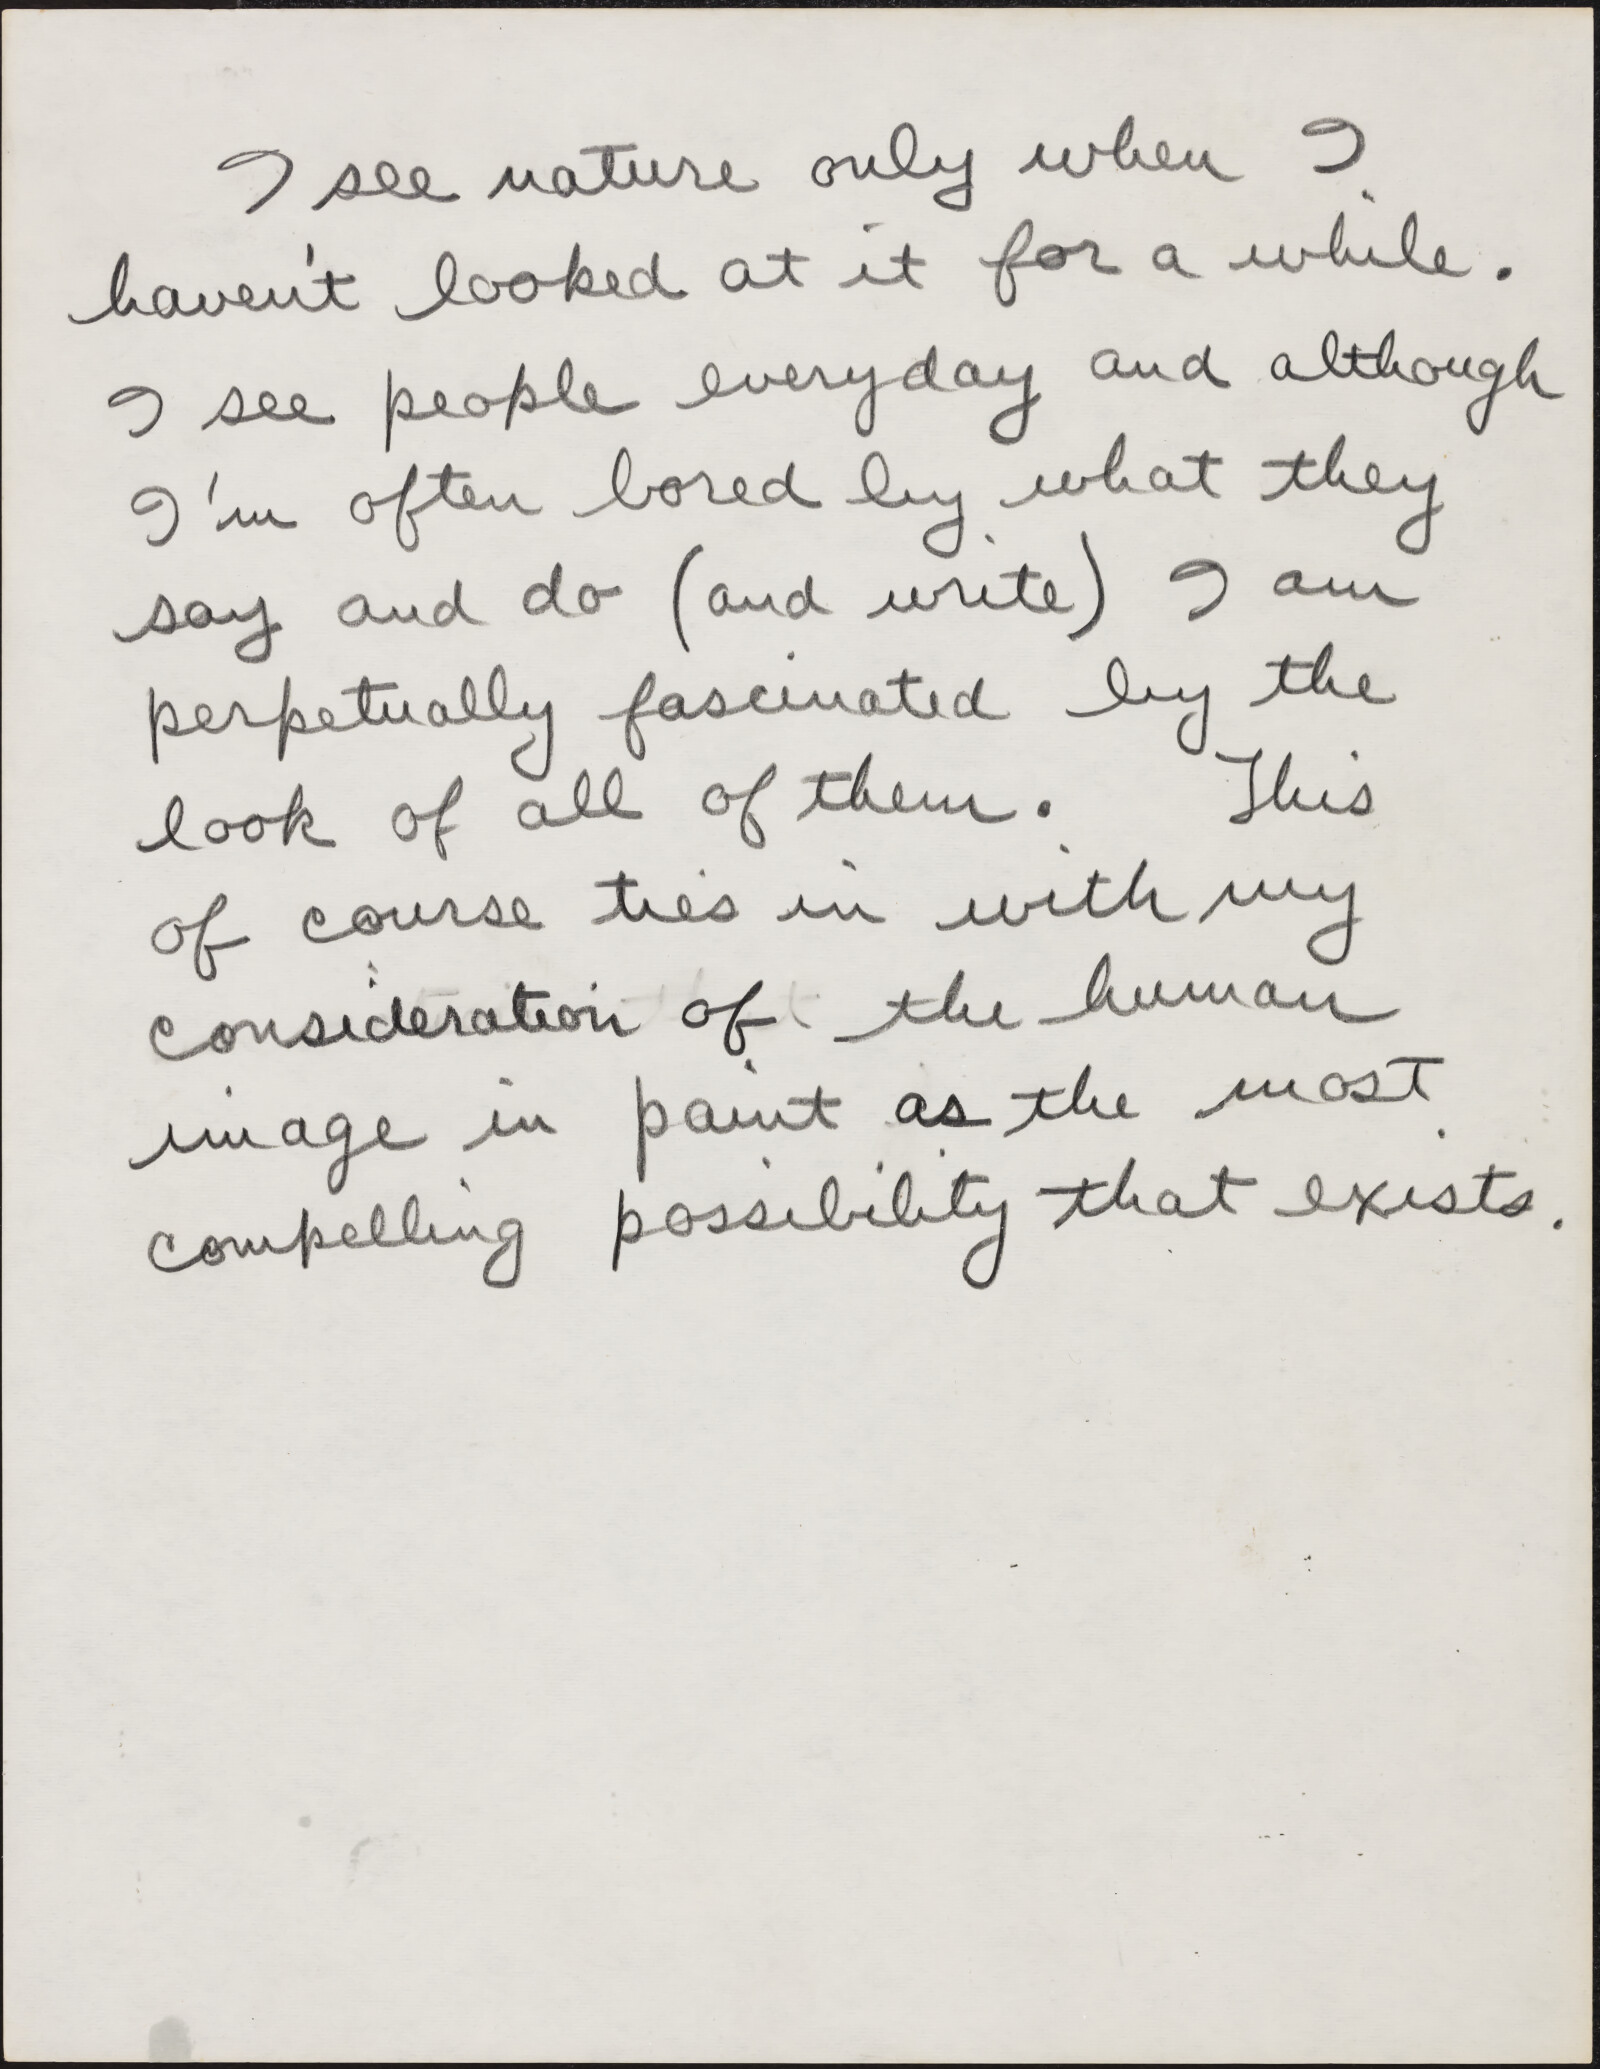 I see nature only when I
haven't looked at it for a while.
I see people everyday and although
I'm often bored by what they
say and do (and write) I am
perpetually fascinated by the
look of all of them. This
of course ties in with my
consideration of the human
image in paint as the most
compelling possibility that exists.